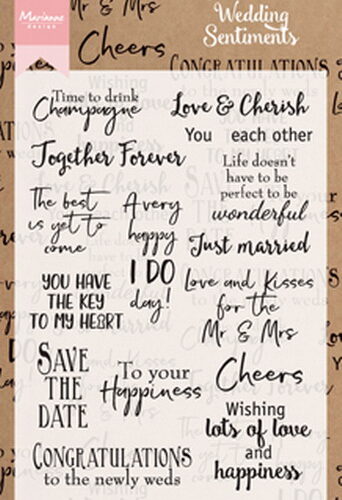 Marianne
DESIGN
Wedding
Sentiments
Mr & Mrs
Cheers
CONGRATULATIONS
Time to drink
Champagne
Love & Cherish
You each other
Together Forever
Life doesn't
have to be
perfect to be
wonderful
The best
is yet to
come
A very
happy
Just married
I DO
day!
YOU HAVE
THE KEY
TO MY HEART
Love and Kisses
for the
Mr & Mrs
SAVE
THE
DATE
To your
Happiness
Cheers
Wishing
lots of love
and
happiness
CONGRATULATIONS
to the newly weds